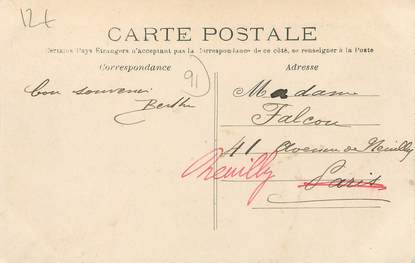 12t
CARTE POSTALE
Certains Pays Étrangers n'acceptant pas la Correspondance de ce côté, se renseigner à la Poste
Correspondance
Adresse
91
bon souvenir
Berthe
Madame
Falcou
41 Avenue de Neuilly
Neuilly
Paris